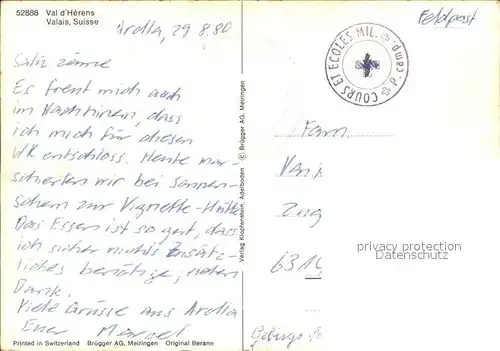 52888 Val d'Hérens
Valais, Suisse
Arolla, 29.8.80
Feldpost
COURS ET ECOLES MIL. P. camp.
Salü zäme
Es freut mich auch
im Nachhinein, dass
ich mich für diesen
WK entschloss. Heute mar-
schierten wir bei Sonnen-
schein zur Vignette-Hütte
Das Essen ist so gut, dass
ich sicher nichts Zusätz-
liches benötige, vielen
Dank.
Viele Grüsse aus Arolla
Euer Marcel
Verlag Klopfenstein, Adelboden © Brügger AG, Meiringen
Fam
Zug
6314
Gebirgs
privacy protection
Datenschutz
Printed in Switzerland Brügger AG, Meiringen Original Berann